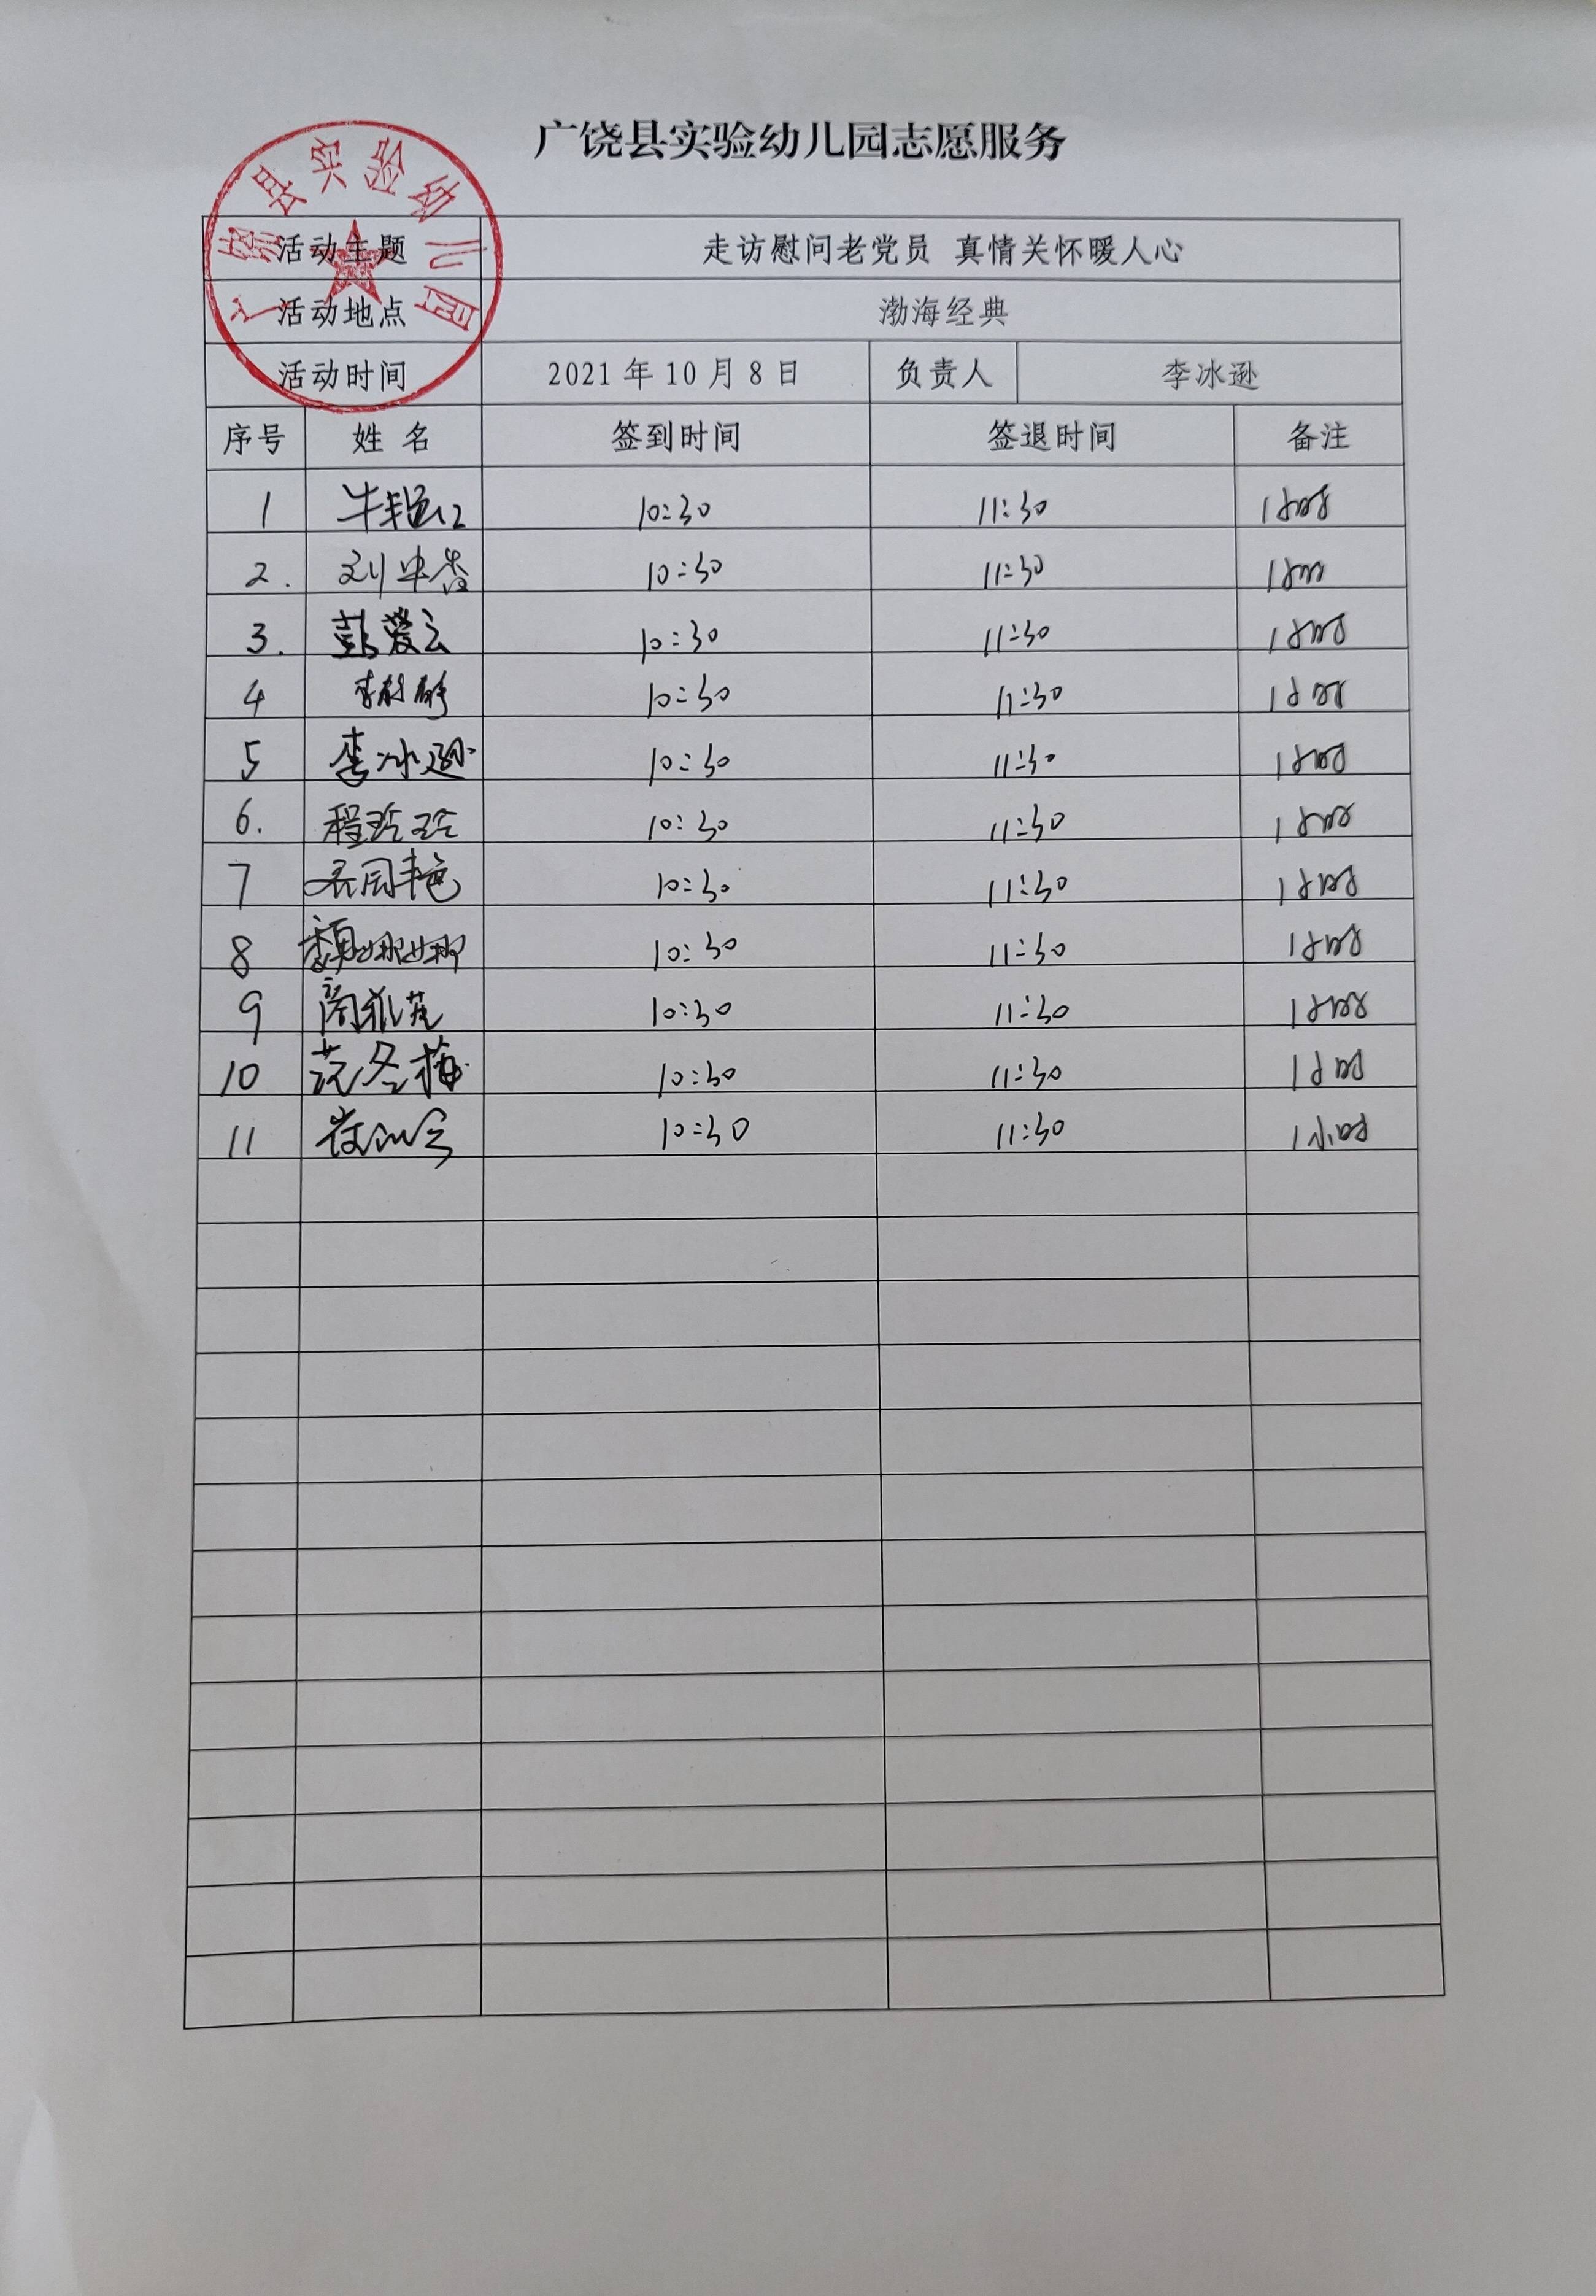 广饶县实验幼儿园志愿服务
广饶县实验幼儿园
活动主题 走访慰问老党员 真情关怀暖人心
活动地点 渤海经典
活动时间 2021年10月8日 负责人 李冰逊
序号 姓名 签到时间 签退时间 备注
1 牛艳江 10:30 11:30 1小时
2. 刘中香 10:30 11:30 1小时
3. 彭爱云 10:30 11:30 1小时
4 10:30 11:30 1小时
5 李冰逊 10:30 11:30 1小时
6. 程玲玲 10:30 11:30 1小时
7 10:30 11:30 1小时
8 魏娜娜 10:30 11:30 1小时
9 10:30 11:30 1小时
10 范冬梅 10:30 11:30 1小时
11 10:30 11:30 1小时